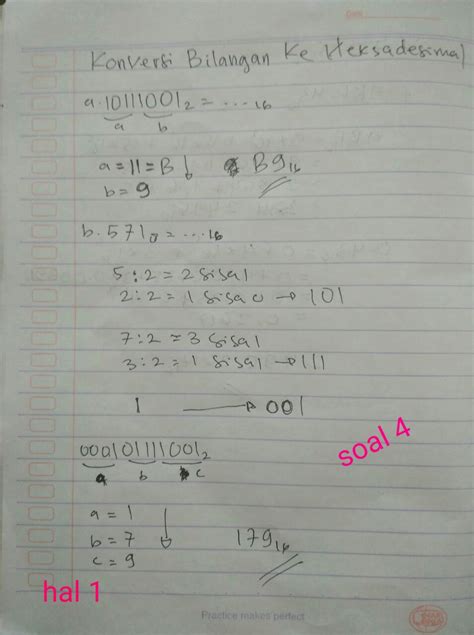 Konversi Bilangan Ke Heksadesimal
a. 10111001₂ = .... ₁₆
a b
a = 11 = B ↓ B9₁₆
b = 9
b. 571₈ = .... ₁₆
5 : 2 = 2 sisa 1
2 : 2 = 1 sisa 0 → 101
7 : 2 = 3 sisa 1
3 : 2 = 1 sisa 1 → 111
1 → 001
soal 4
000101111001₂
a b c
a = 1
b = 7 ↓ 179₁₆
c = 9
hal 1
Practice makes perfect